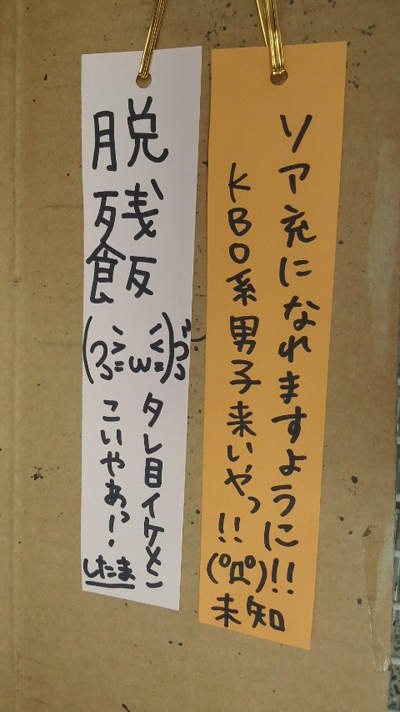 ソア充になれますように!!
KBO系男子来いやっ!!
(゜Д゜)
未知
脱残飯
(っ≧ω≦)っ
タレ目イケメン
こいやぁっ!
したま